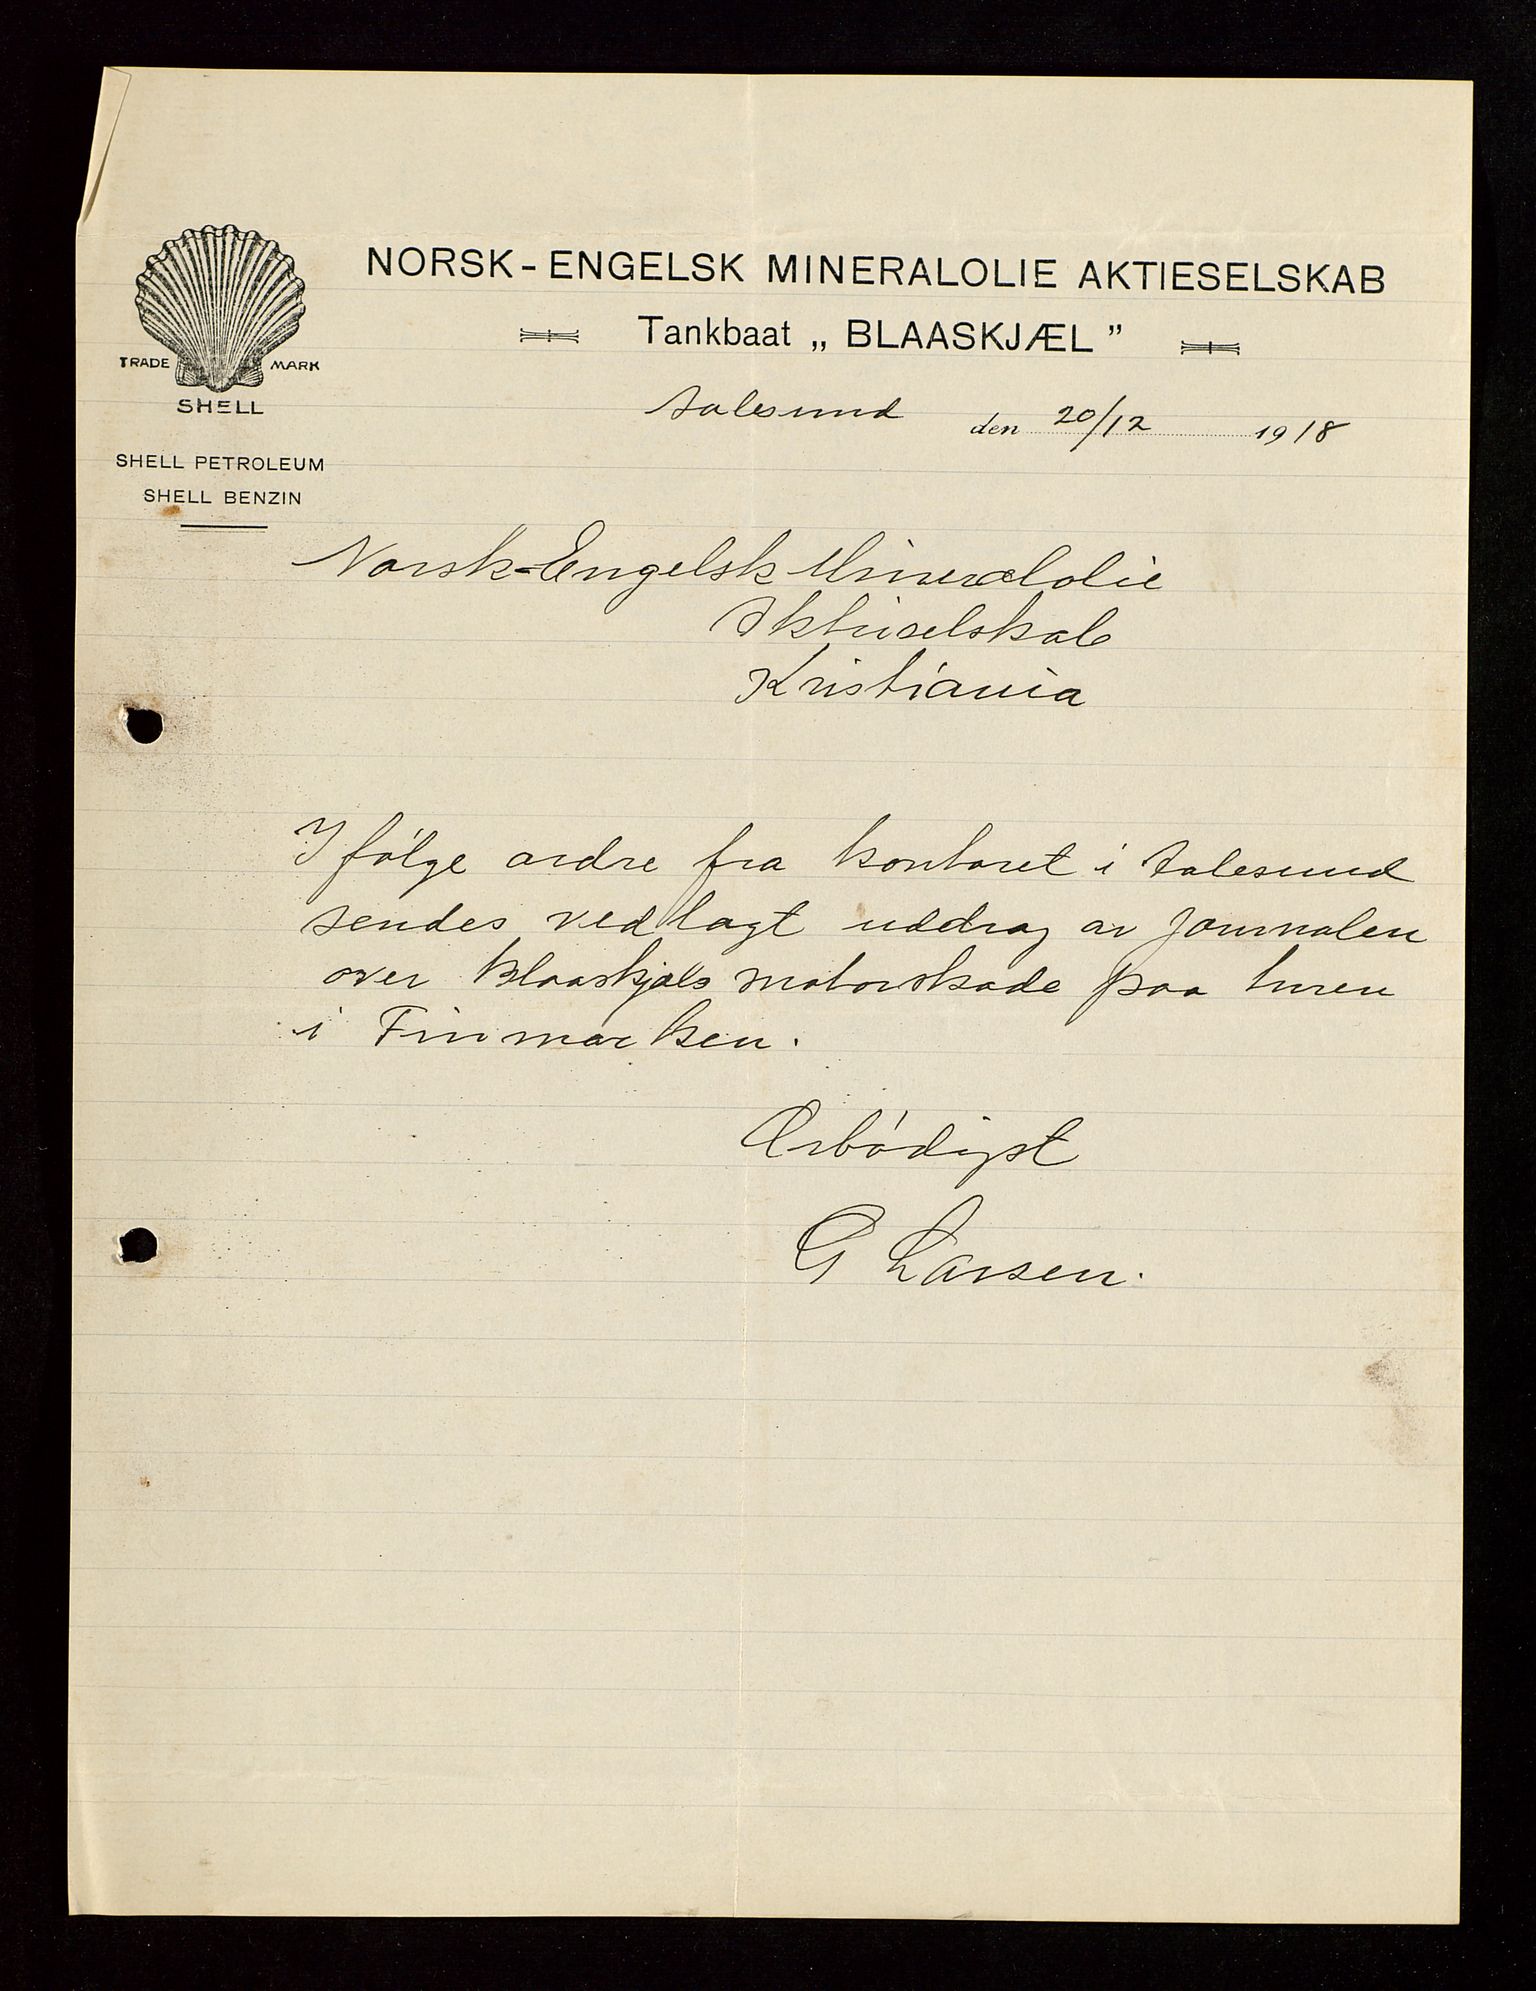 NORSK - ENGELSK MINERALOLIE AKTIESELSKAB
Tankbaat „ BLAASKJÆL ”
TRADE MARK
SHELL
SHELL PETROLEUM
SHELL BENZIN
Aalesund den 20/12 1918
Norsk-Engelsk Mineralolie
Aktieselskab
Kristiania
I følge ordre fra kontoret i Aalesund
sendes vedlagt uddrag av Journalen
over Blaaskjæls motorskade paa turen
i Finmarken.
Ærbødigst
G Larsen.